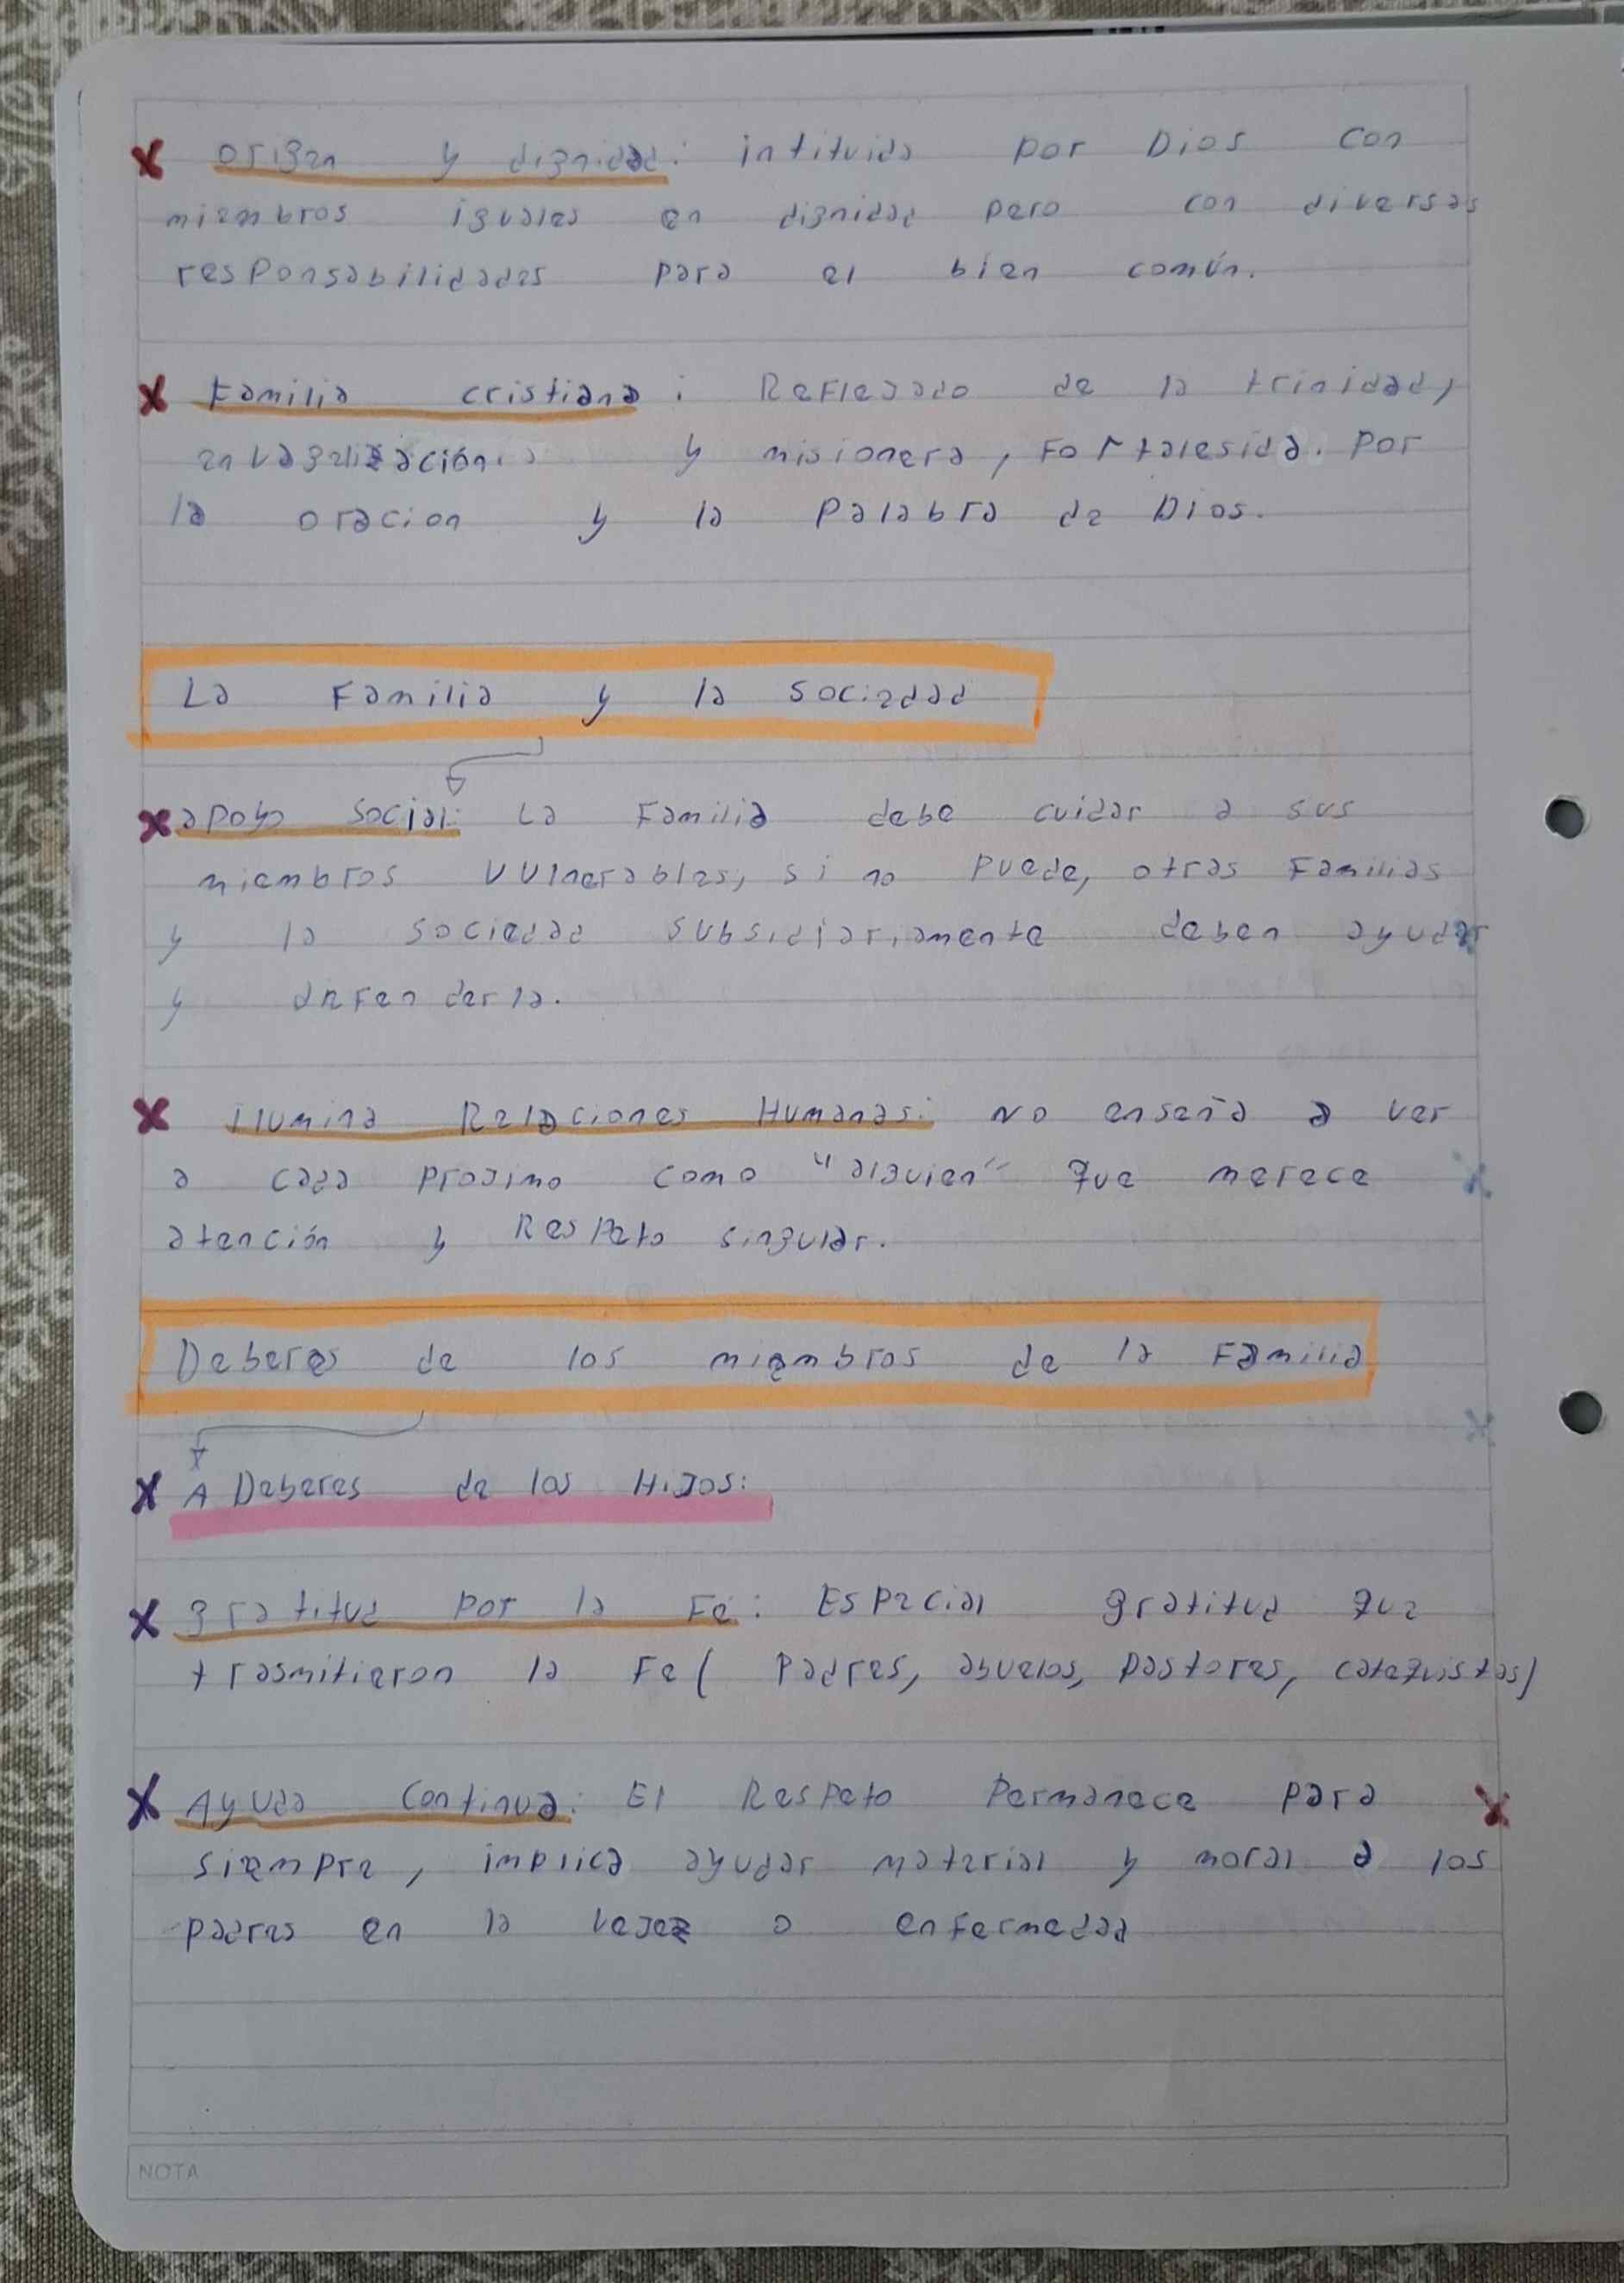 x origen y dignidad: intituido por Dios con
miembros iguales en dignidad pero con diversas
responsabilidades para el bien común.
x Familia cristiana: Reflejado de la trinidad,
envagelización y misionera, Fortalesida. por
la oracion y la palabra de Dios.
La Familia y la sociedad
x apoyo social: La Familia debe cuidar a sus
miembros vulnerables, si no puede, otras Familias
y la sociedad subsidiariamente deben ayudar
y defenderla.
x ilumina Relaciones Humanas: no enseña a ver
a cada projimo como "alguien" que merece
atención y Respeto singular.
Deberes de los miembros de la Familia
x A Deberes de los Hijos:
x gratitud por la Fe: Especial gratitud que
trasmitieron la Fe ( padres, abuelos, pastores, catequistas)
x Ayuda continua: El Respeto permanece para
siempre, implica ayudar material y moral a los
padres en la vejez o enfermedad
NOTA